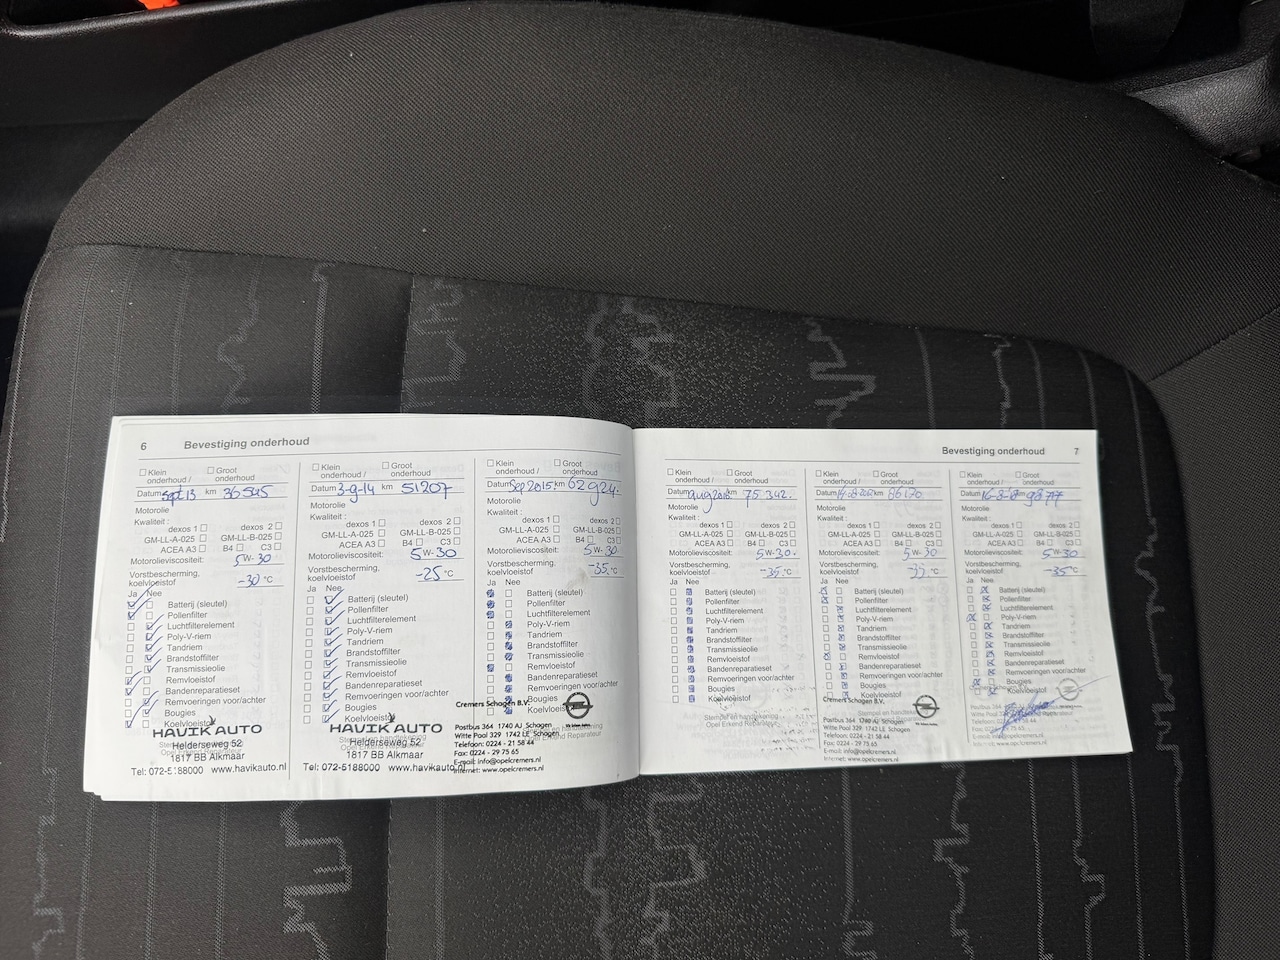 6 Bevestiging onderhoud
Klein onderhoud / Groot onderhoud
Datum sept 13 km 36545
Motorolie
Kwaliteit :
dexos 1 dexos 2
GM-LL-A-025 GM-LL-B-025
ACEA A3 B4 C3
Motorolieviscositeit: 5W-30
Vorstbescherming,
koelvloeistof -30 °C
Ja Nee
Batterij (sleutel)
Pollenfilter
Luchtfilterelement
Poly-V-riem
Tandriem
Brandstoffilter
Transmissieolie
Remvloeistof
Bandenreparatieset
Remvoeringen voor/achter
Bougies
Koelvloeistof
HAVIK AUTO
Helderseweg 52
1817 BB Alkmaar
Tel: 072-5188000 www.havikauto.nl
Klein onderhoud / Groot onderhoud
Datum 3-9-14 km 51207
Motorolie
Kwaliteit :
dexos 1 dexos 2
GM-LL-A-025 GM-LL-B-025
ACEA A3 B4 C3
Motorolieviscositeit: 5W-30
Vorstbescherming,
koelvloeistof -25 °C
Ja Nee
Batterij (sleutel)
Pollenfilter
Luchtfilterelement
Poly-V-riem
Tandriem
Brandstoffilter
Transmissieolie
Remvloeistof
Bandenreparatieset
Remvoeringen voor/achter
Bougies
Koelvloeistof
HAVIK AUTO
Helderseweg 52
1817 BB Alkmaar
Tel: 072-5188000 www.havikauto.nl
Klein onderhoud / Groot onderhoud
Datum Sep 2015 km 62924.
Motorolie
Kwaliteit :
dexos 1 dexos 2
GM-LL-A-025 GM-LL-B-025
ACEA A3 B4 C3
Motorolieviscositeit: 5W-30
Vorstbescherming,
koelvloeistof -35 °C
Ja Nee
Batterij (sleutel)
Pollenfilter
Luchtfilterelement
Poly-V-riem
Tandriem
Brandstoffilter
Transmissieolie
Remvloeistof
Bandenreparatieset
Remvoeringen voor/achter
Bougies
Koelvloeistof
Cremers Schagen B.V.
Postbus 364 1740 AJ Schagen
Witte Paal 329 1742 LE Schagen
Telefoon: 0224 - 21 58 44
Fax: 0224 - 29 75 65
E-mail: info@opelcremers.nl
Internet: www.opelcremers.nl
Bevestiging onderhoud 7
Klein onderhoud / Groot onderhoud
Datum aug 2016 km 75342.
Motorolie
Kwaliteit :
dexos 1 dexos 2
GM-LL-A-025 GM-LL-B-025
ACEA A3 B4 C3
Motorolieviscositeit: 5W-30.
Vorstbescherming,
koelvloeistof -35 °C
Ja Nee
Batterij (sleutel)
Pollenfilter
Luchtfilterelement
Poly-V-riem
Tandriem
Brandstoffilter
Transmissieolie
Remvloeistof
Bandenreparatieset
Remvoeringen voor/achter
Bougies
Koelvloeistof
Stempel en handtekening
Opel Erkend Reparateur
Klein onderhoud / Groot onderhoud
Datum km 86170
Motorolie
Kwaliteit :
dexos 1 dexos 2
GM-LL-A-025 GM-LL-B-025
ACEA A3 B4 C3
Motorolieviscositeit: 5W-30
Vorstbescherming,
koelvloeistof °C
Ja Nee
Batterij (sleutel)
Pollenfilter
Luchtfilterelement
Poly-V-riem
Tandriem
Brandstoffilter
Transmissieolie
Remvloeistof
Bandenreparatieset
Remvoeringen voor/achter
Bougies
Koelvloeistof
Cremers Schagen B.V.
Postbus 364 1740 AJ Schagen
Witte Paal 329 1742 LE Schagen
Telefoon: 0224 - 21 58 44
Fax: 0224 - 29 75 65
E-mail: info@opelcremers.nl
Internet: www.opelcremers.nl
Klein onderhoud / Groot onderhoud
Datum km
Motorolie
Kwaliteit :
dexos 1 dexos 2
GM-LL-A-025 GM-LL-B-025
ACEA A3 B4 C3
Motorolieviscositeit: 5W-30
Vorstbescherming,
koelvloeistof -35 °C
Ja Nee
Batterij (sleutel)
Pollenfilter
Luchtfilterelement
Poly-V-riem
Tandriem
Brandstoffilter
Transmissieolie
Remvloeistof
Bandenreparatieset
Remvoeringen voor/achter
Bougies
Koelvloeistof
Postbus 364
Witte Paal 329
Telefoon: 0224
Fax: 0224 - 29 75 65
E-mail: info@opelcremers.nl
Internet: www.opelcremers.nl